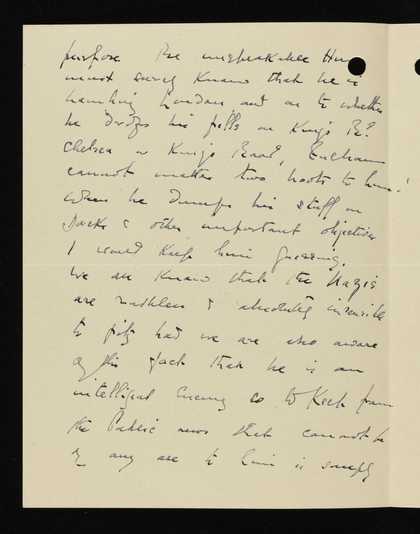 purpose. The unspeakable Hun
must surely know that he is
bombing London and as to whether
he drops his pills on King's Rd
Chelsea or King's Road,
cannot matter two hoots to him!
when he dumps his stuff on
Docks & other important objectives
I would keep him guessing.
We all know that the Nazis
are ruthless & absolutely insensible
to pity but we are also aware
of this fact that he is an
intelligent enemy so to keep from
the Public news that cannot be
of any use to him is simply